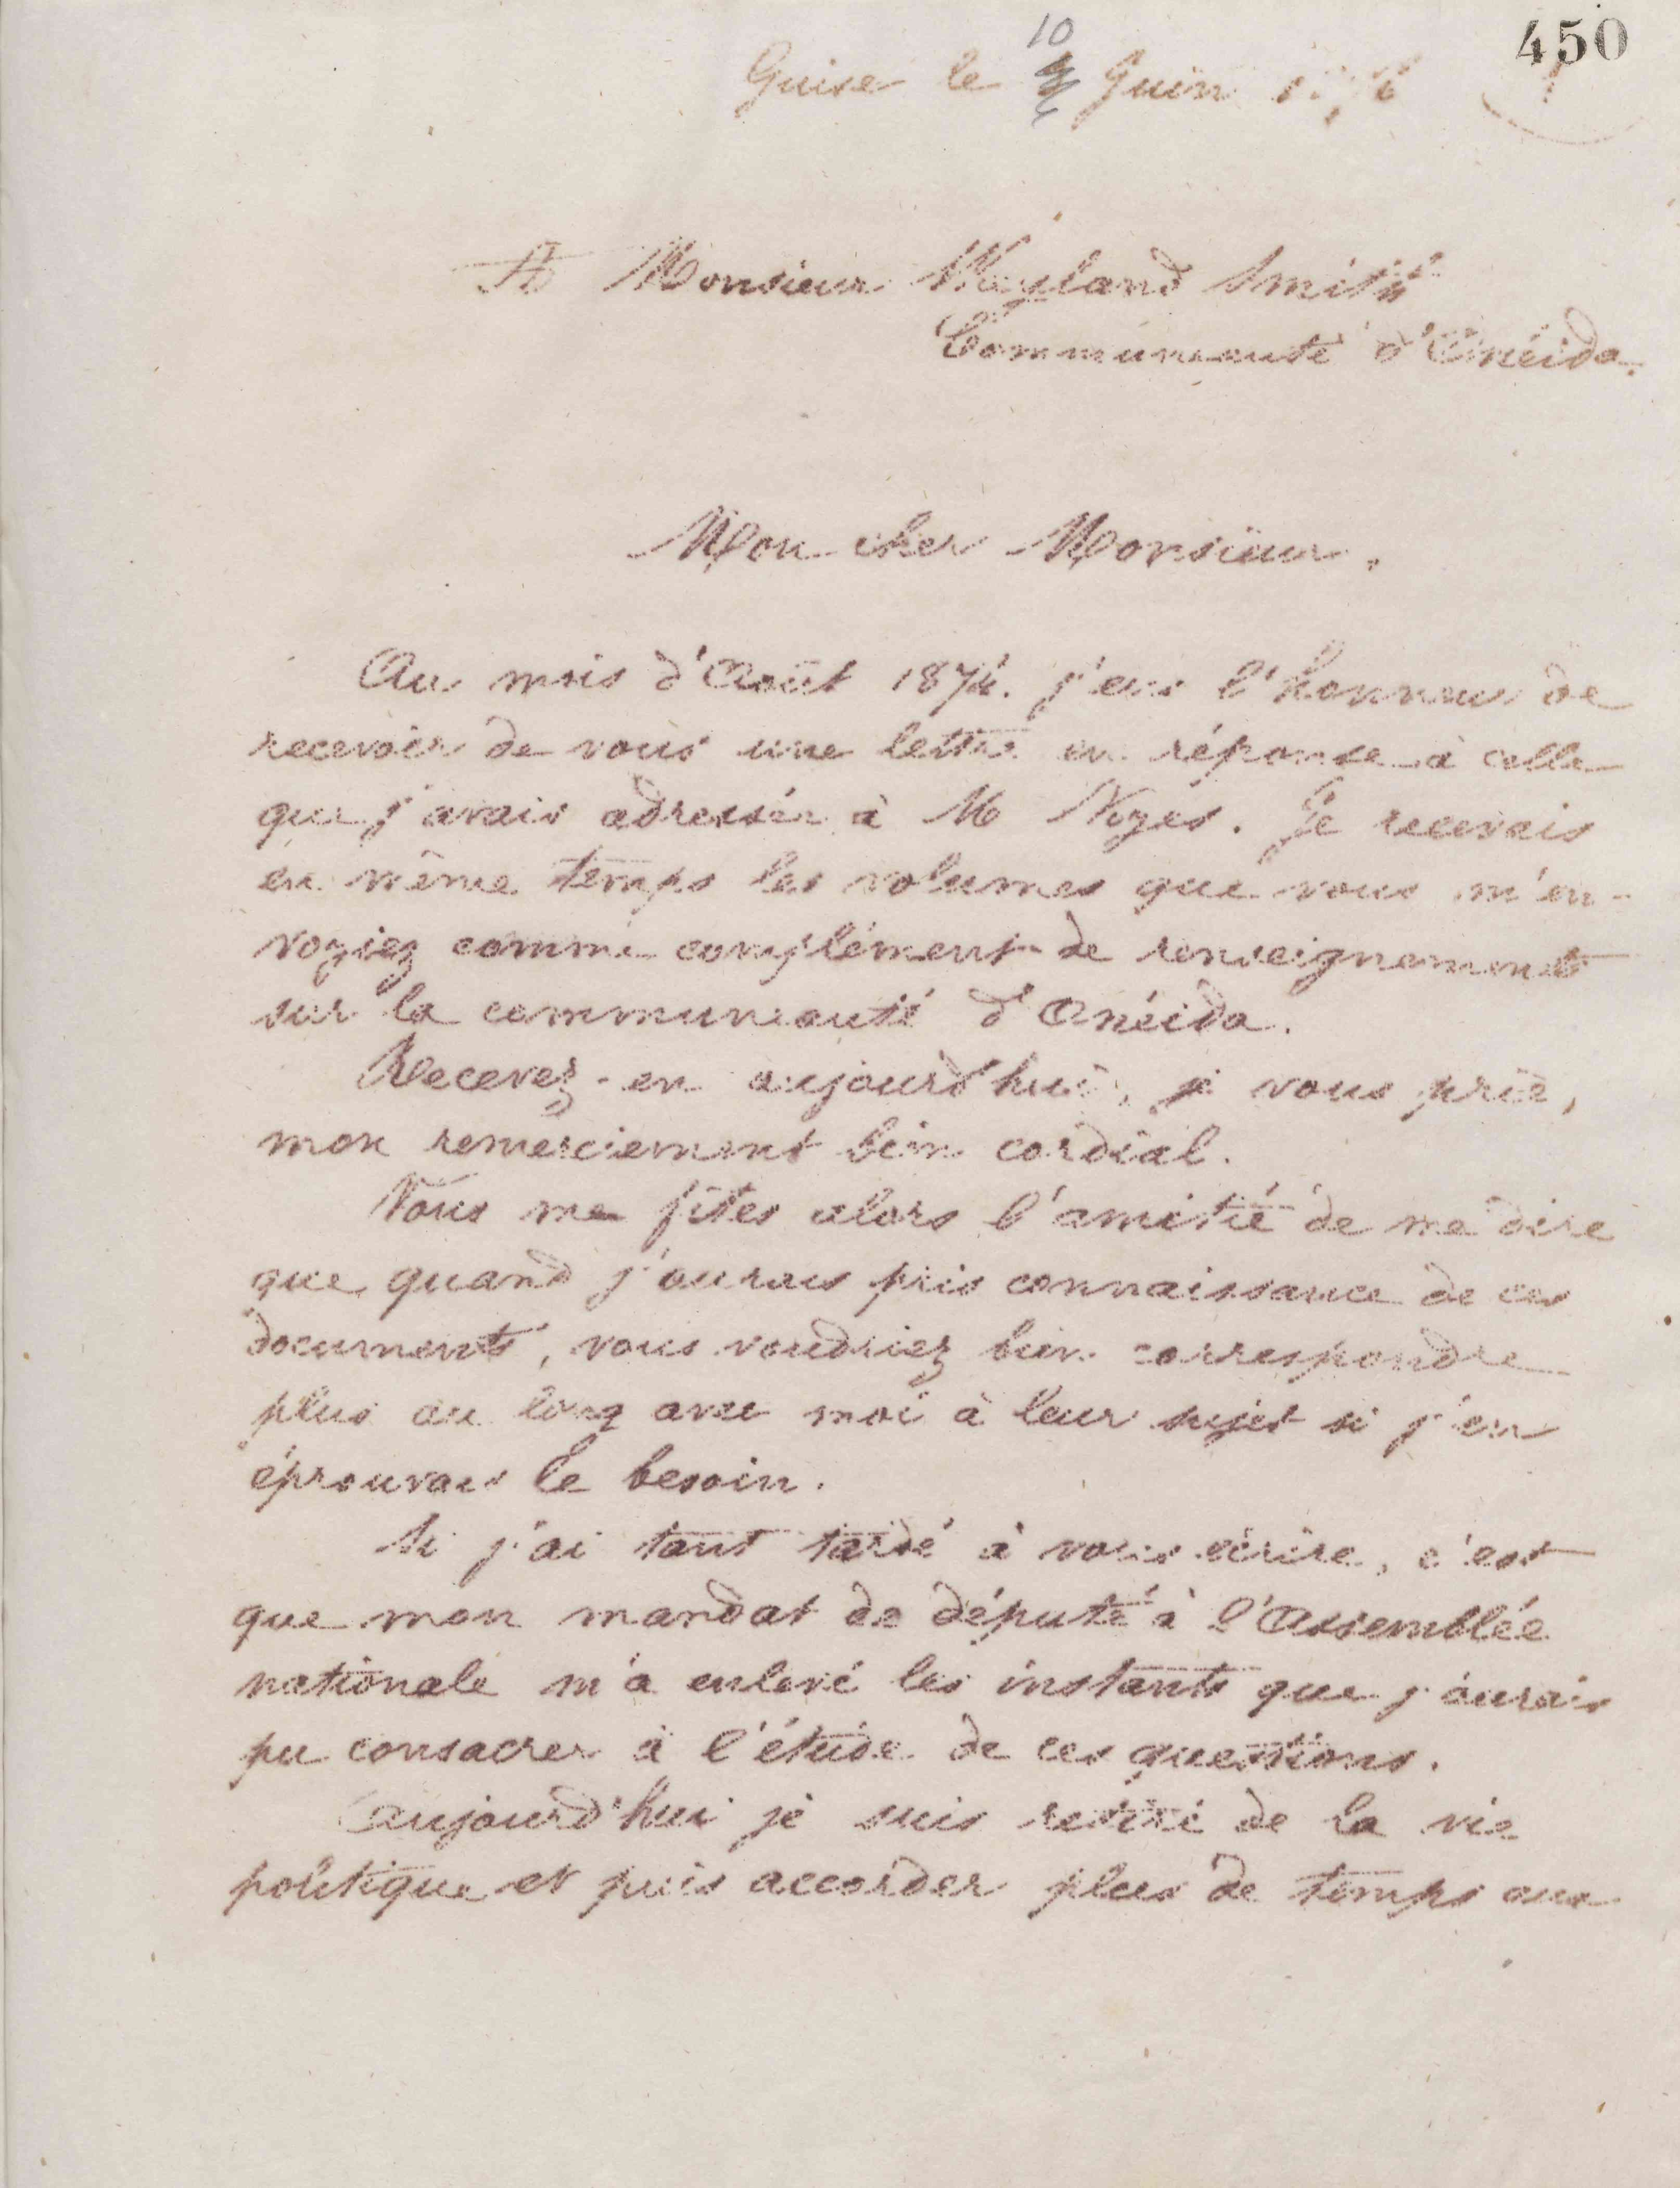 450
10
Guise le Juin 1876
A Monsieur Wayland Smith
Communauté d'Onéida.
Mon cher Monsieur.
Au mois d'Août 1874. j'eus l'honneur de
recevoir de vous une lettre en réponse à celle
que j'avais adressée à M Noyes. Je recevais
en même temps les volumes que vous m'en-
voyiez comme complément de renseignements
sur la communauté d'Onéida.
Recevez-en aujourd'hui, je vous prie,
mon remerciement bien cordial.
Vous me fîtes alors l'amitié de me dire
que quand j'aurais pris connaissance de ces
documents, vous voudriez bien correspondre
plus au long avec moi à leur sujet si j'en
éprouvais le besoin.
Si j'ai tant tardé à vous écrire, c'est
que mon mandat de député à l'Assemblée
nationale m'a enlevé les instants que j'aurais
pu consacrer à l'étude de ces questions.
Aujourd'hui je suis retiré de la vie
politique et puis accorder plus de temps aux